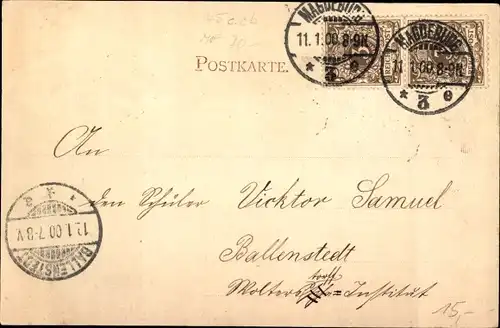 MAGDEBURG
11.1.00.8-9N.
* 3 e
MAGDEBURG
11.1.00.8-9N.
* 3 e
POSTKARTE.
An
den Schüler Vicktor Samuel
Ballenstedt
torff
Wolters = Institut
12.1.00.7-8V.
BALLENSTEDT
15,-